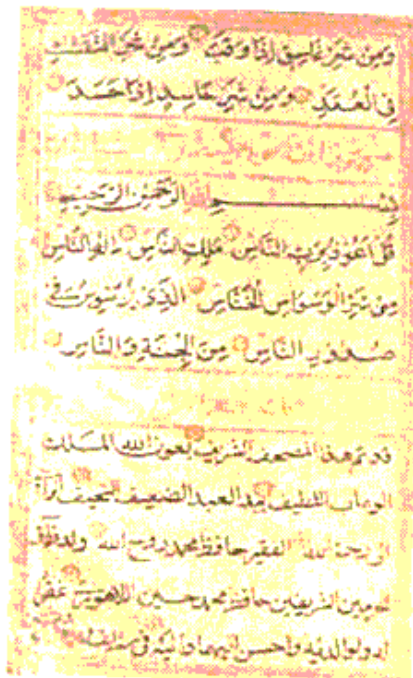 ومن شر غاسق إذا وقب ومن شر النفثت
في العقد ومن شر حاسد إذا حسد
بسم الله الرحمن الرحيم
قل أعوذ برب الناس ملك الناس إله الناس
من شر الوسواس الخناس الذي يوسوس في
صدور الناس من الجنة والناس
قد تم هذا المصحف الشريف بعون الله الملك
الوهاب اللطيف بيد العبد الضعيف النحيف
رحمة الله الفقير حافظ محمد روح الله ولد
الحرمين الشريفين حافظ محمد حسين اللاهوري غفر
له ولوالديه وأحسن إليهما وإليه في